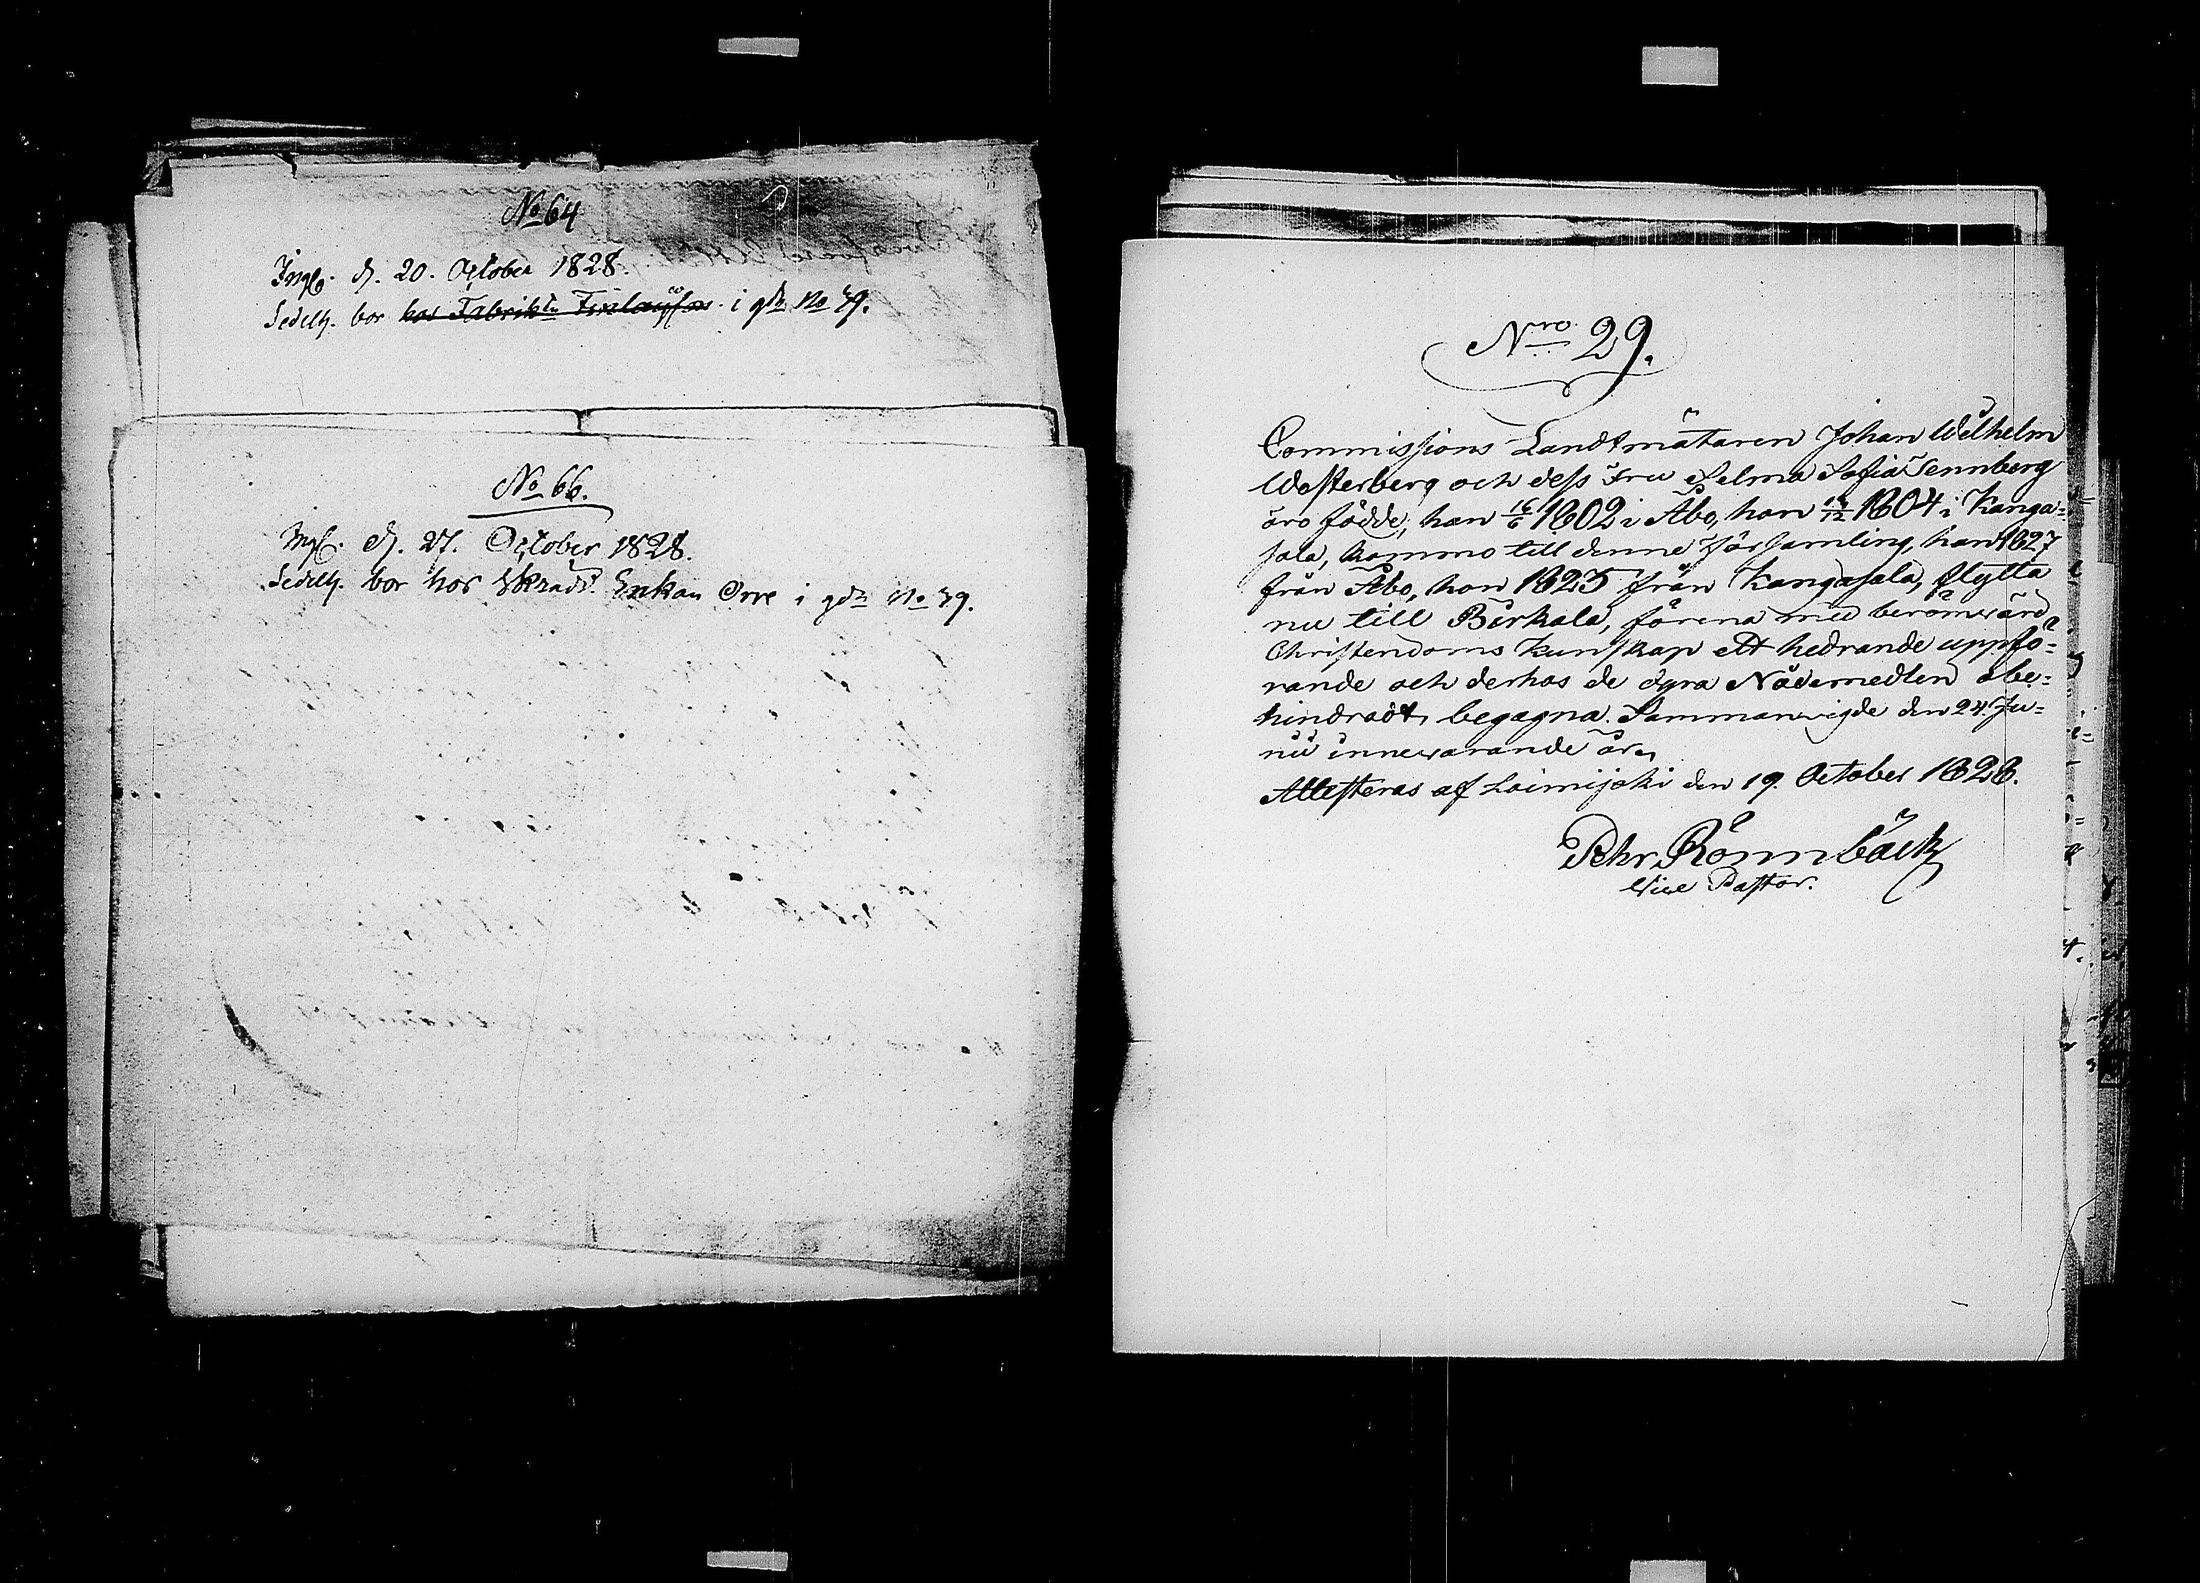 No 64
Ingl. d. 20. October 1828.
Sedelh. bor hos Fabrik Finlayson i gdn No 79.
No 66.
Ingl. d. 27. October 1828.
Sedelh. bor hos Skradd. Enkan Orre i gdn No 79.
Nro 29.
Commissions Landtmätaren Johan Wilhelm
Westerberg och dess Fru Selma Sofia Tennberg
äro födde, han 16/6 1802 i Åbo, hon /12 1804 i Kanga=
sala, kommo till denne Församling, han 1827
från Åbo, hon 1825 från Kangasala, flytta
nu till Birkala, förena med berömvärd
Christendoms Kunskap ett hedrande uppfö=
rande och derhos de dyra Nådemedlen obe=
hindradt, begagna. Sammanvigde den 24. Ju=
nii innevarande år,
Attesteras af Loimijoki den 19. October 1828.
Pehr Rönnbäck
Vice Pastor.